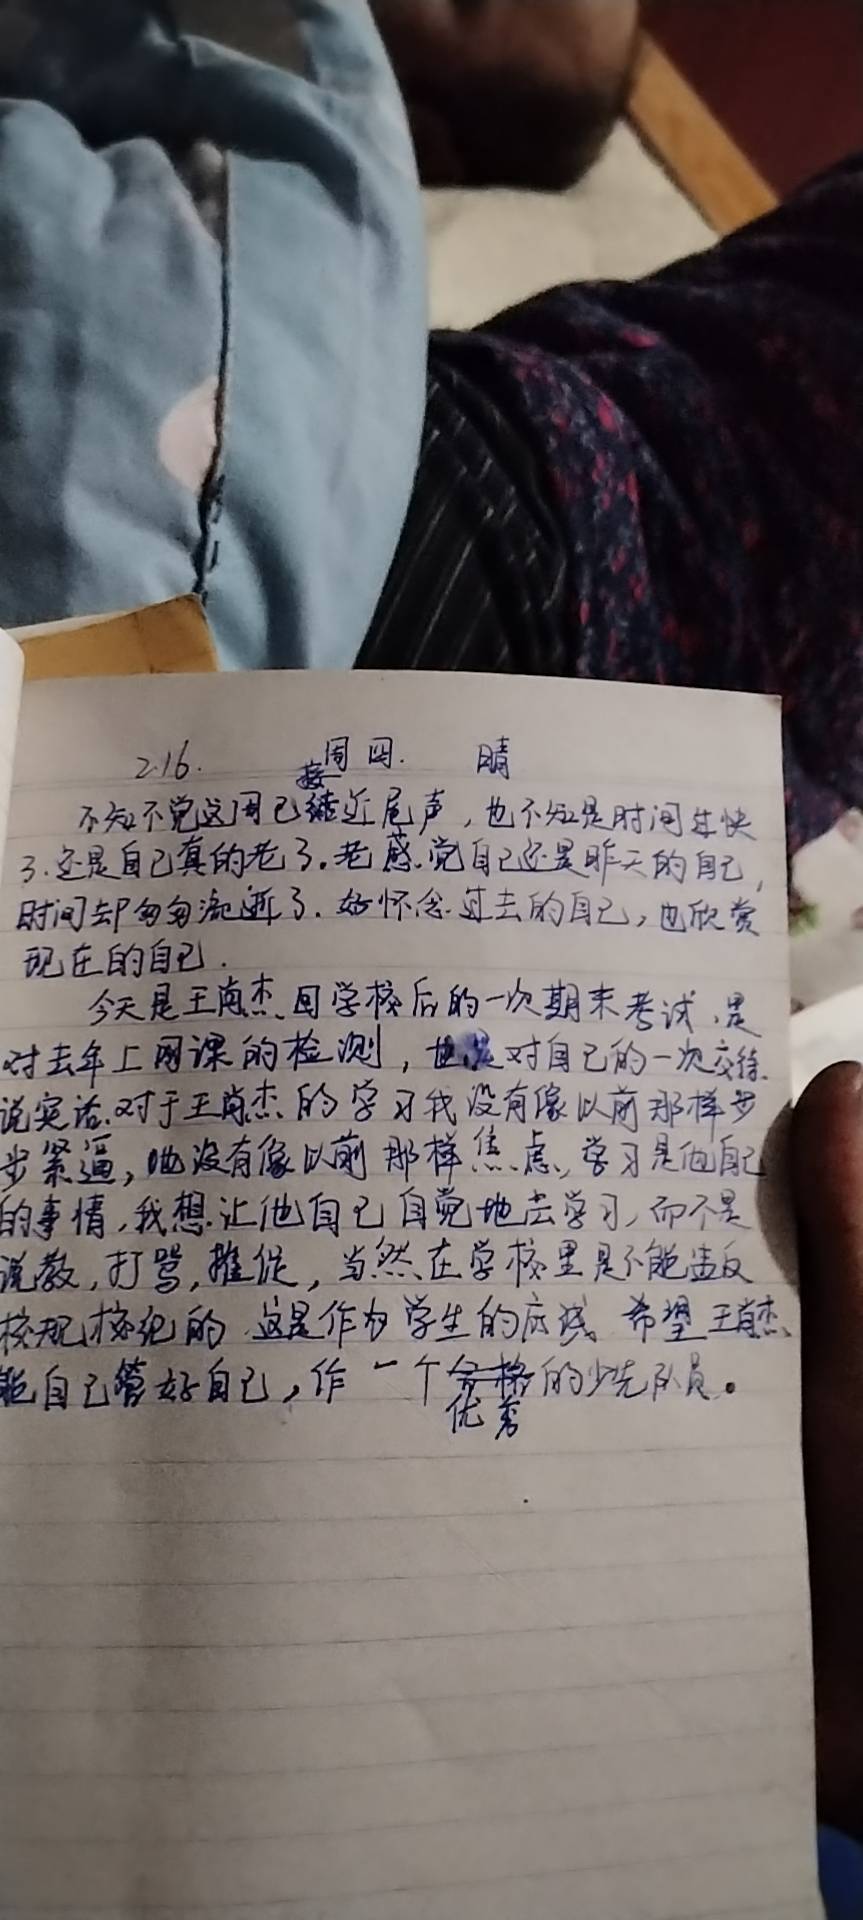 2.16. 周四. 晴
不知不觉这周已接近尾声，也不知是时间过快
了.还是自己真的老了。老感觉自己还是昨天的自己，
时间却匆匆流逝了.好怀念过去的自己，也欣赏
现在的自己.
今天是王肖杰回学校后的一次期末考试，是
对去年上网课的检测，也是对自己的一次交待.
说实话.对于王肖杰的学习我没有像以前那样步
步紧逼，也没有像以前那样焦虑，学习是他自己
的事情，我想让他自己自觉地去学习，而不是
说教，打骂，推促，当然在学校里是不能违反
校规校纪的 这是作为学生的底线 希望王肖杰
能自己管好自己，作一个优秀的少先队员。